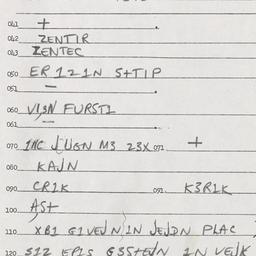 041 +
042 ZENTIR
043 ZENTEC
050 ER 121N S+TIP
051 —
060 FURST1
061 —
070 M3 23X 071 +
080 KAJN
090 CR1K 091. K3R1K
100 AS+
110 XB1 G1VEJN 1N JEJDN PLAC
120 S12 EP1S G3S+EJN 1N VEJK